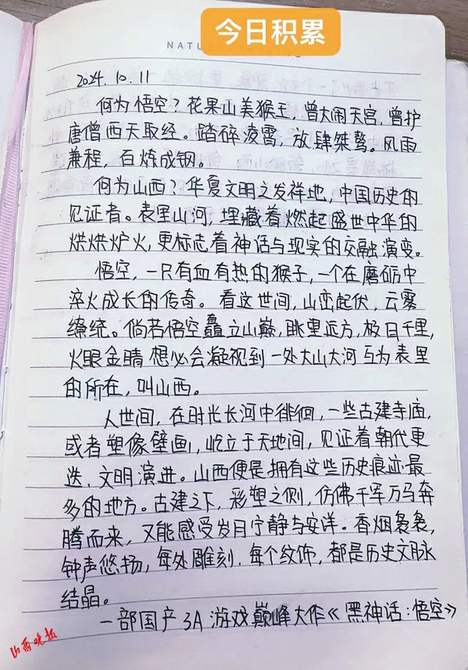 今日积累
NATU
2024.10.11
何为悟空？花果山美猴王，曾大闹天宫，曾护
唐僧西天取经。踏碎凌霄，放肆桀骜。风雨
兼程，百炼成钢。
何为山西？华夏文明之发祥地，中国历史的
见证者。表里山河，埋藏着燃起盛世中华的
烘烘炉火，更标志着神话与现实的交融演变。
悟空，一只有血有热的猴子，一个在磨砺中
淬火成长的传奇。看这世间，山峦起伏，云雾
缭绕。倘若悟空矗立山巅，眺望远方，极目千里，
火眼金睛想必会凝视到一处大山大河互为表里
的所在，叫山西。
人世间，在时光长河中徘徊，一些古建寺庙，
或者塑像壁画，屹立于天地间，见证着朝代更
迭、文明演进。山西便是拥有这些历史痕迹最
多的地方。古建之下，彩塑之侧，仿佛千军万马奔
腾而来，又能感受岁月宁静与安详。香烟袅袅，
钟声悠扬，每处雕刻，每个纹饰，都是历史文脉
结晶。
一部国产3A游戏巅峰大作《黑神话：悟空》
山西晚报